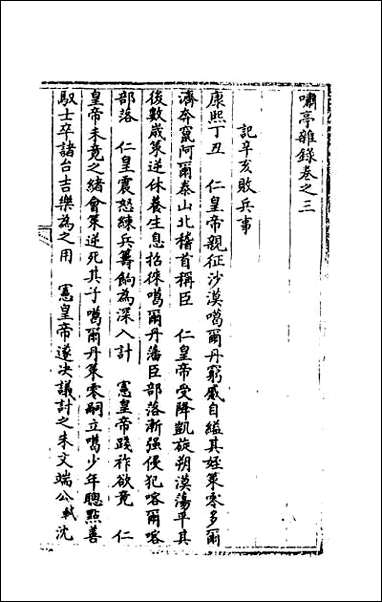 嘯亭雜錄卷之三
記辛亥敗兵事
康熙丁丑 仁皇帝親征沙漠噶爾丹窮蹙自縊其姪策零多爾
濟奔竄阿爾泰山北稽首稱臣 仁皇帝受降凱旋朔漠蕩平其
後數歲策逆休養生息招徠噶爾丹藩臣部落漸强侵犯喀爾喀
部落 仁皇震怒練兵籌餉為深入計 憲皇帝踐祚欲竟 仁
皇帝未竟之緒會策逆死其子噶爾丹策零嗣立噶少年聰黠善
馭士卒諸台吉樂為之用 憲皇帝遂决議討之朱文端公軾沈